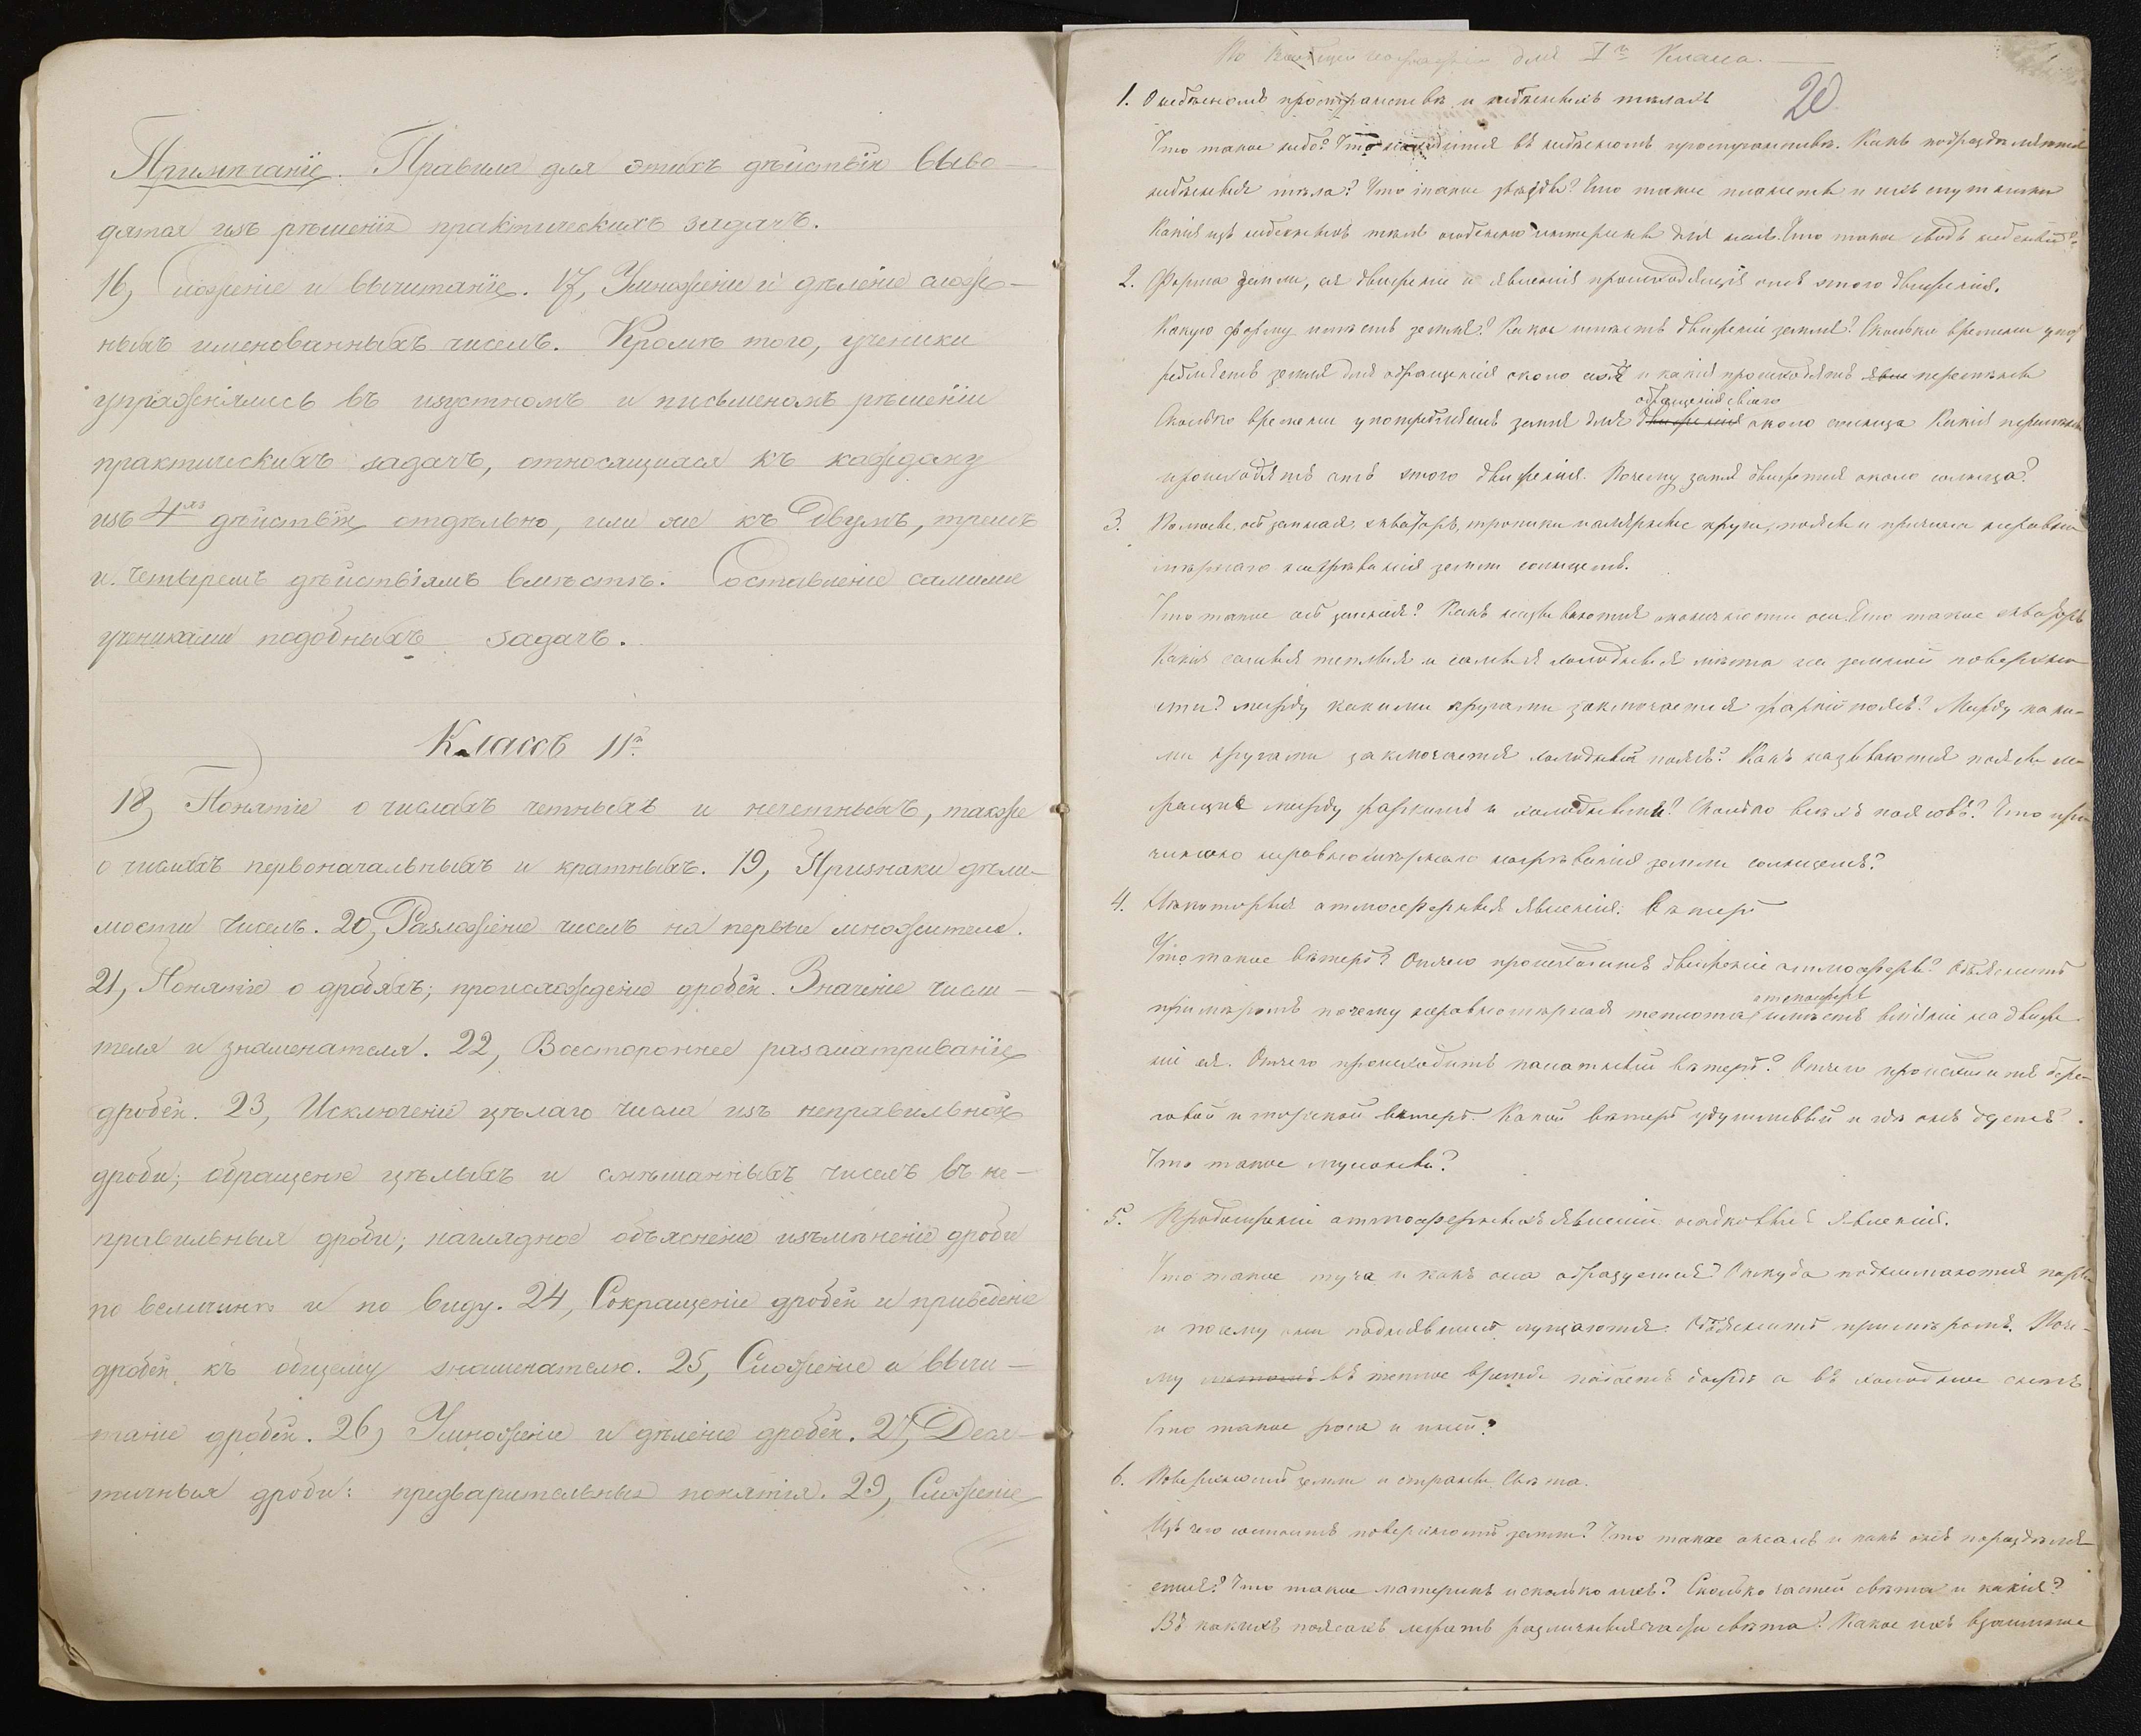 Примѣчаніе. Правила для этихъ дѣйствій выво-
дятся изъ рѣшенія практическихъ задачъ.
16, Сложеніе и вычитаніе. 17, Умноженіе и дѣленіе слож-
ныхъ именованныхъ чиселъ. Кромѣ того, ученики
упражнялись въ изустномъ и письменомъ рѣшеніи
практическихъ задачъ, относящихся къ каждому
изъ 4хъ дѣйствій отдѣльно, или же къ двумъ, тремъ
и четыремъ дѣйствіямъ вмѣстѣ. Составленіе самими
учениками подобныхъ задачъ.
Классъ II й
18, Понятіе о числахъ четныхъ и нечетныхъ, также
о числахъ первоначальныхъ и кратныхъ. 19, Признаки дѣли-
мости чиселъ. 20, Разложеніе чиселъ на первые множители.
21, Понятіе о дробяхъ; происхожденіе дробей. Значеніе числи-
теля и знаменателя. 22, Всестороннее разсматриваніе
дробей. 23, Исключеніе цѣлаго числа изъ неправильной
дроби; обращеніе цѣлыхъ и смѣшанныхъ чиселъ въ не-
правильныя дроби; наглядное объясненіе измѣненіе дроби
по величинѣ и по виду. 24, Сокращеніе дробей и приведеніе
дробей къ общему знаменателю. 25, Сложеніе и вычи-
таніе дробей. 26, Умноженіе и дѣленіе дробей. 27, Деся-
тичныя дроби: предварительныя понятія. 29, Сложеніе
По географіи для I го Класса.
20
1. О небесномъ пространствѣ и небесныхъ тѣлахъ
Что такое небо? Что находится въ небесномъ пространствѣ. Какъ подраздѣляются
небесныя тѣла? Что такое звѣзды? Что такое планеты и ихъ спутники
Какія изъ небесныхъ тѣлъ особенно интересны для насъ. Что такое сводъ небесный?
2. Форма земли, ея движеніе и явленія происходящія отъ этого движенія.
Какую форму имѣетъ земля? Какое имѣетъ движеніе земля? Сколько времени упот
ребляетъ земля для обращенія около себя и какія происходятъ перемѣны
обращенія своего
Сколько времени употребляетъ земля для движенія около солнца Какія перемѣны
происходятъ отъ этого движенія. Почему земля движется около солнца?
3. Полюсы, ось земная, экваторъ, тропики и полярные круги, поясы и причина неравно
мѣрнаго нагрѣванія земли солнцемъ.
Что такое ось земная? Какъ называются оконечности оси. Что такое экваторъ
Какія самыя теплыя и самыя холодныя мѣста на земной поверхно
сти? между какими кругами заключается жаркій поясъ? Между каки-
ми кругами заключается холодный поясъ? Какъ называются поясы ле-
жащіе между жаркимъ и холоднымъ? Сколько всѣхъ поясовъ? Что при
чиною неравномѣрнаго нагрѣванія земли солнцемъ?
4. Нѣкоторыя атмосферныя явленія: вѣтеръ
Что такое вѣтеръ? Отчего происходитъ движеніе атмосферы? Объяснить
атмосферы
примѣромъ почему неравномѣрная теплота имѣетъ вліяніе на движе
ніе ея. Отчего происходитъ пассатный вѣтеръ? Отчего происходитъ бере-
говой и морской вѣтеръ. Какой вѣтеръ удушливый и гдѣ онъ дуетъ.
Что такое муссоны?
5. Продолженіе атмосферныхъ явленій осадковыя явленія.
Что такое туча и какъ она образуется? Откуда поднимаются пары
и почему они поднявшись сгущаются. Объяснить примѣромъ. Поче-
му въ теплое время падаетъ дождь а въ холодное снѣгъ
Что такое роса и иней?
6. Поверхность земли и страны свѣта.
Изъ чего состоитъ поверхность земли? Что такое океанъ и какъ онъ подраздѣля
ется? Что такое материкъ и сколько ихъ? Сколько частей свѣта и какія?
Въ какихъ поясахъ лежатъ различныя части свѣта? Какое ихъ взаимное